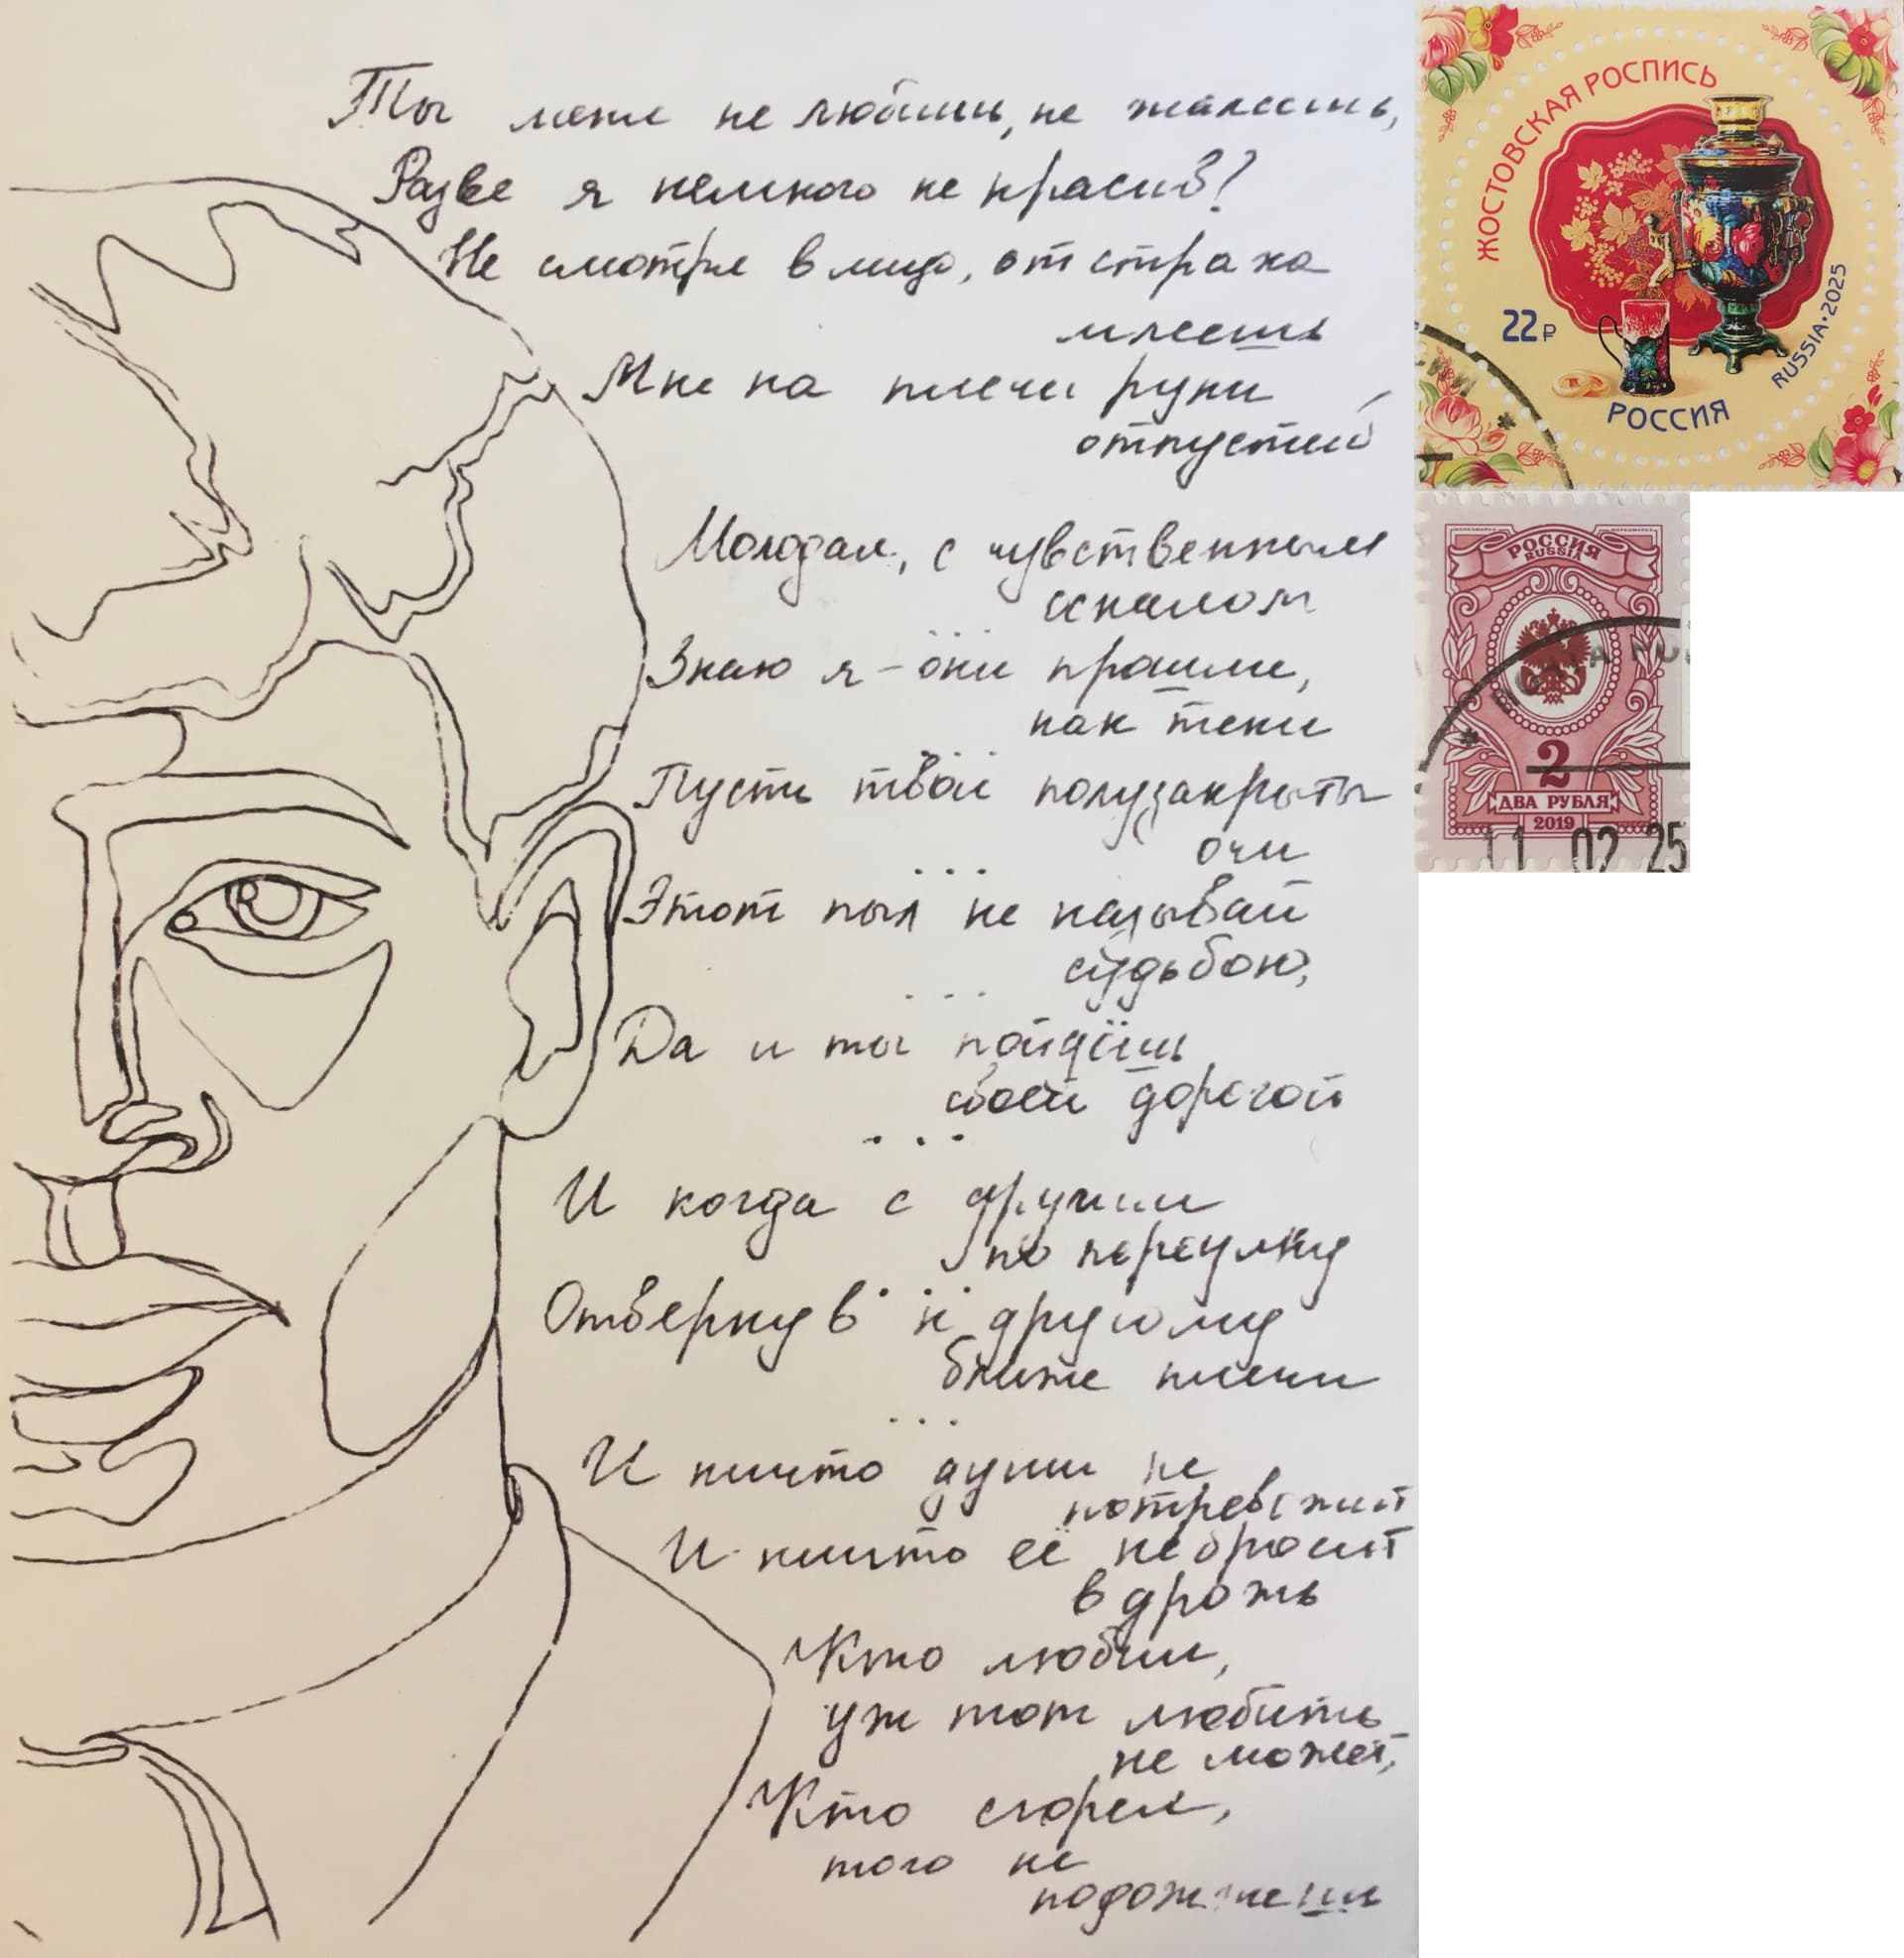 Ты меня не любишь, не жалеешь,
Разве я немного не красив?
Не смотря в лицо, от страха
млеешь
Мне на плечи руки
отпустив
Молодая, с чувственным
оскалом
...
Знаю я – они прошли,
как тени
...
Пусть твои полузакрыты
очи
...
Этот пыл не называй
судьбою,
...
Да и ты пойдёшь
своей дорогой
...
И когда с другим
по переулку
...
Отвернув к другому
ближе плечи
...
И ничто души не
потревожит
И ничто её не бросит
в дрожь
Кто любил,
уж тот любить
не может,
Кто сгорел,
того не
подожжешь
ЖОСТОВСКАЯ РОСПИСЬ
22₽
RUSSIA • 2025
РОССИЯ
РОССИЯ
RUSSIA
2
ДВА РУБЛЯ
2019
11 02 25